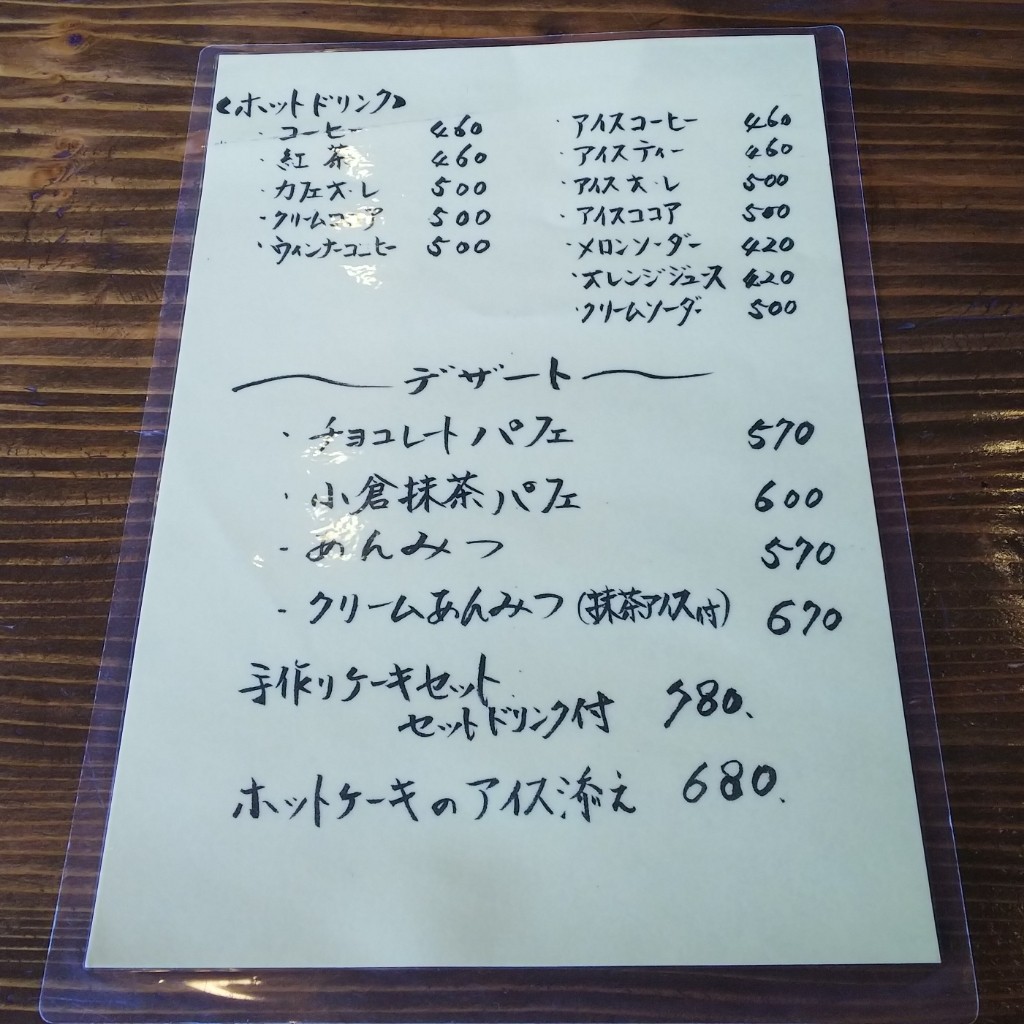 <ホットドリンク>
・コーヒー 460
・紅茶 460
・カフェオ・レ 500
・クリームココア 500
・ウィンナーコーヒー 500
・アイスコーヒー 460
・アイスティー 460
・アイスオ・レ 500
・アイスココア 500
・メロンソーダー 420
・オレンジジュース 420
・クリームソーダー 500
デザート
・チョコレートパフェ 570
・小倉抹茶パフェ 600
・あんみつ 570
・クリームあんみつ(抹茶アイス付) 670
手作りケーキセット
セットドリンク付 780.
ホットケーキのアイス添え 680.